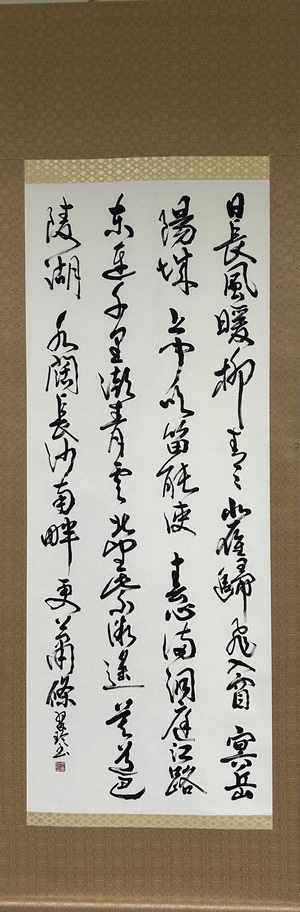 日長風暖柳青々北雁歸飛入窅冥岳
陽城上聞吹笛能使春心滿洞庭江路
東連千里潮青雲北望紫微遙莫道巴
陵湖水闊長沙南畔更蕭條